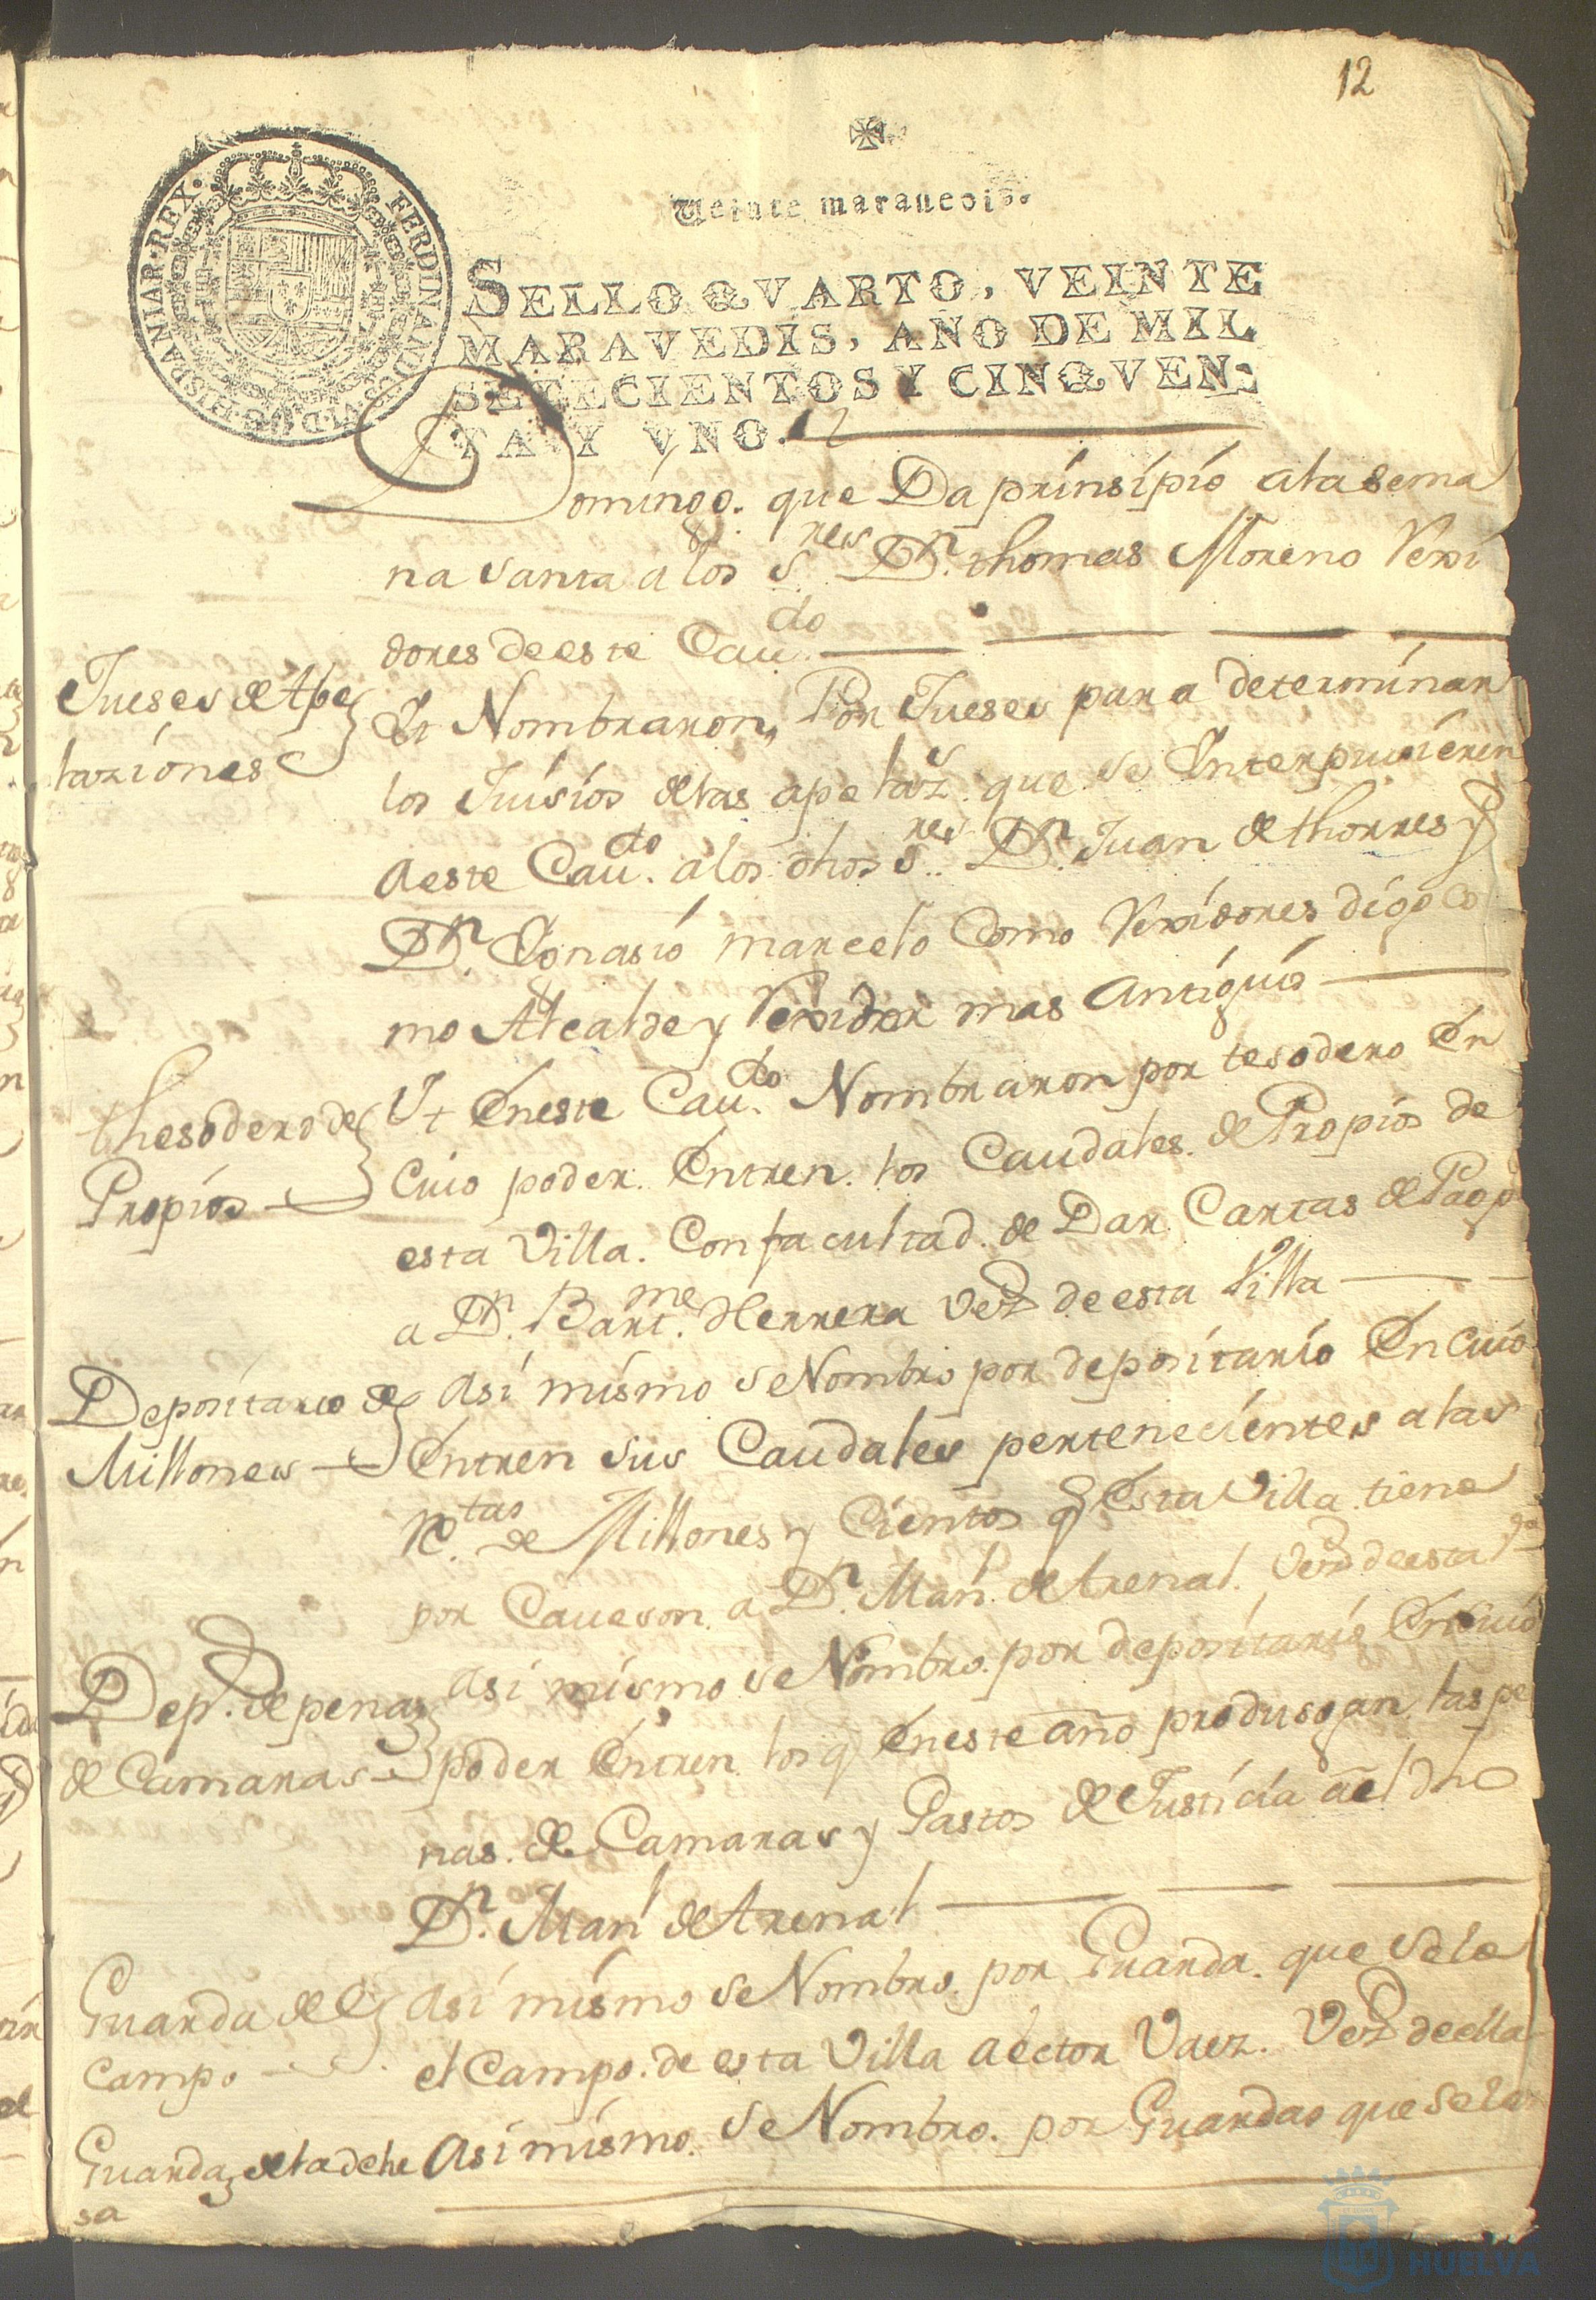 12
Veinte maravedis.
FERDINANDUS.VI.D.G.HISPANIAR.REX.
SELLO QVARTO, VEINTE
MARAVEDIS, AÑO DE MIL
SETECIENTOS Y CINQVEN-
TA Y VNO.
Domingo. que Da prinsipio a la sema
na santa a los S.res Dn. thomas Moreno Rexi
dores de este Cau.do
Jueses de Ape
laziones
Yt Nombraron, Por Jueses para determinar
los Juisios de las apelaz.s que se Interpusieren
a este Cau.do a los dhos S.res Dn. Juan de thorres y
Dn. Ygnasio marcelo Como Rexidores digo co
mo Alcalde y Rexidor mas Antiguo
thesodero de
Propios
Yt En este Cau.do Nombraron por tesodero En
Cuio poder. Entren. los Caudales. de Propios de
esta Villa. Con facultad. de Dar. Cartas de Pago
a Dn. Bart.me Herrera Vez.o de esta Villa
Depositario de
Millones
Asi mismo se Nombro por depositario En Cuio
Entren sus Caudales pertenecientes a las
R.tas de Millones y Cientos q Esta Villa tiene
por Caueson. a Dn. Man.l de Arenal. Vez.o de esta V.a
Dep.o de penas
de Camaras
Asi mismo se Nombro. por depositario En Cuio
poder Entren los q En este año produsgan las pe
nas. de Camaras y Gastos de Justicia a el dho
Dn. Man.l de Arenal
Guarda de el
campo
Asi mismo se Nombro. por Guarda. que sele
el Campo. de esta Villa a ector Vaez. Vez.o de ella
Guardas de la dehe
sa
Asi mismo. se Nombro. por Guardas que selan
HUELVA